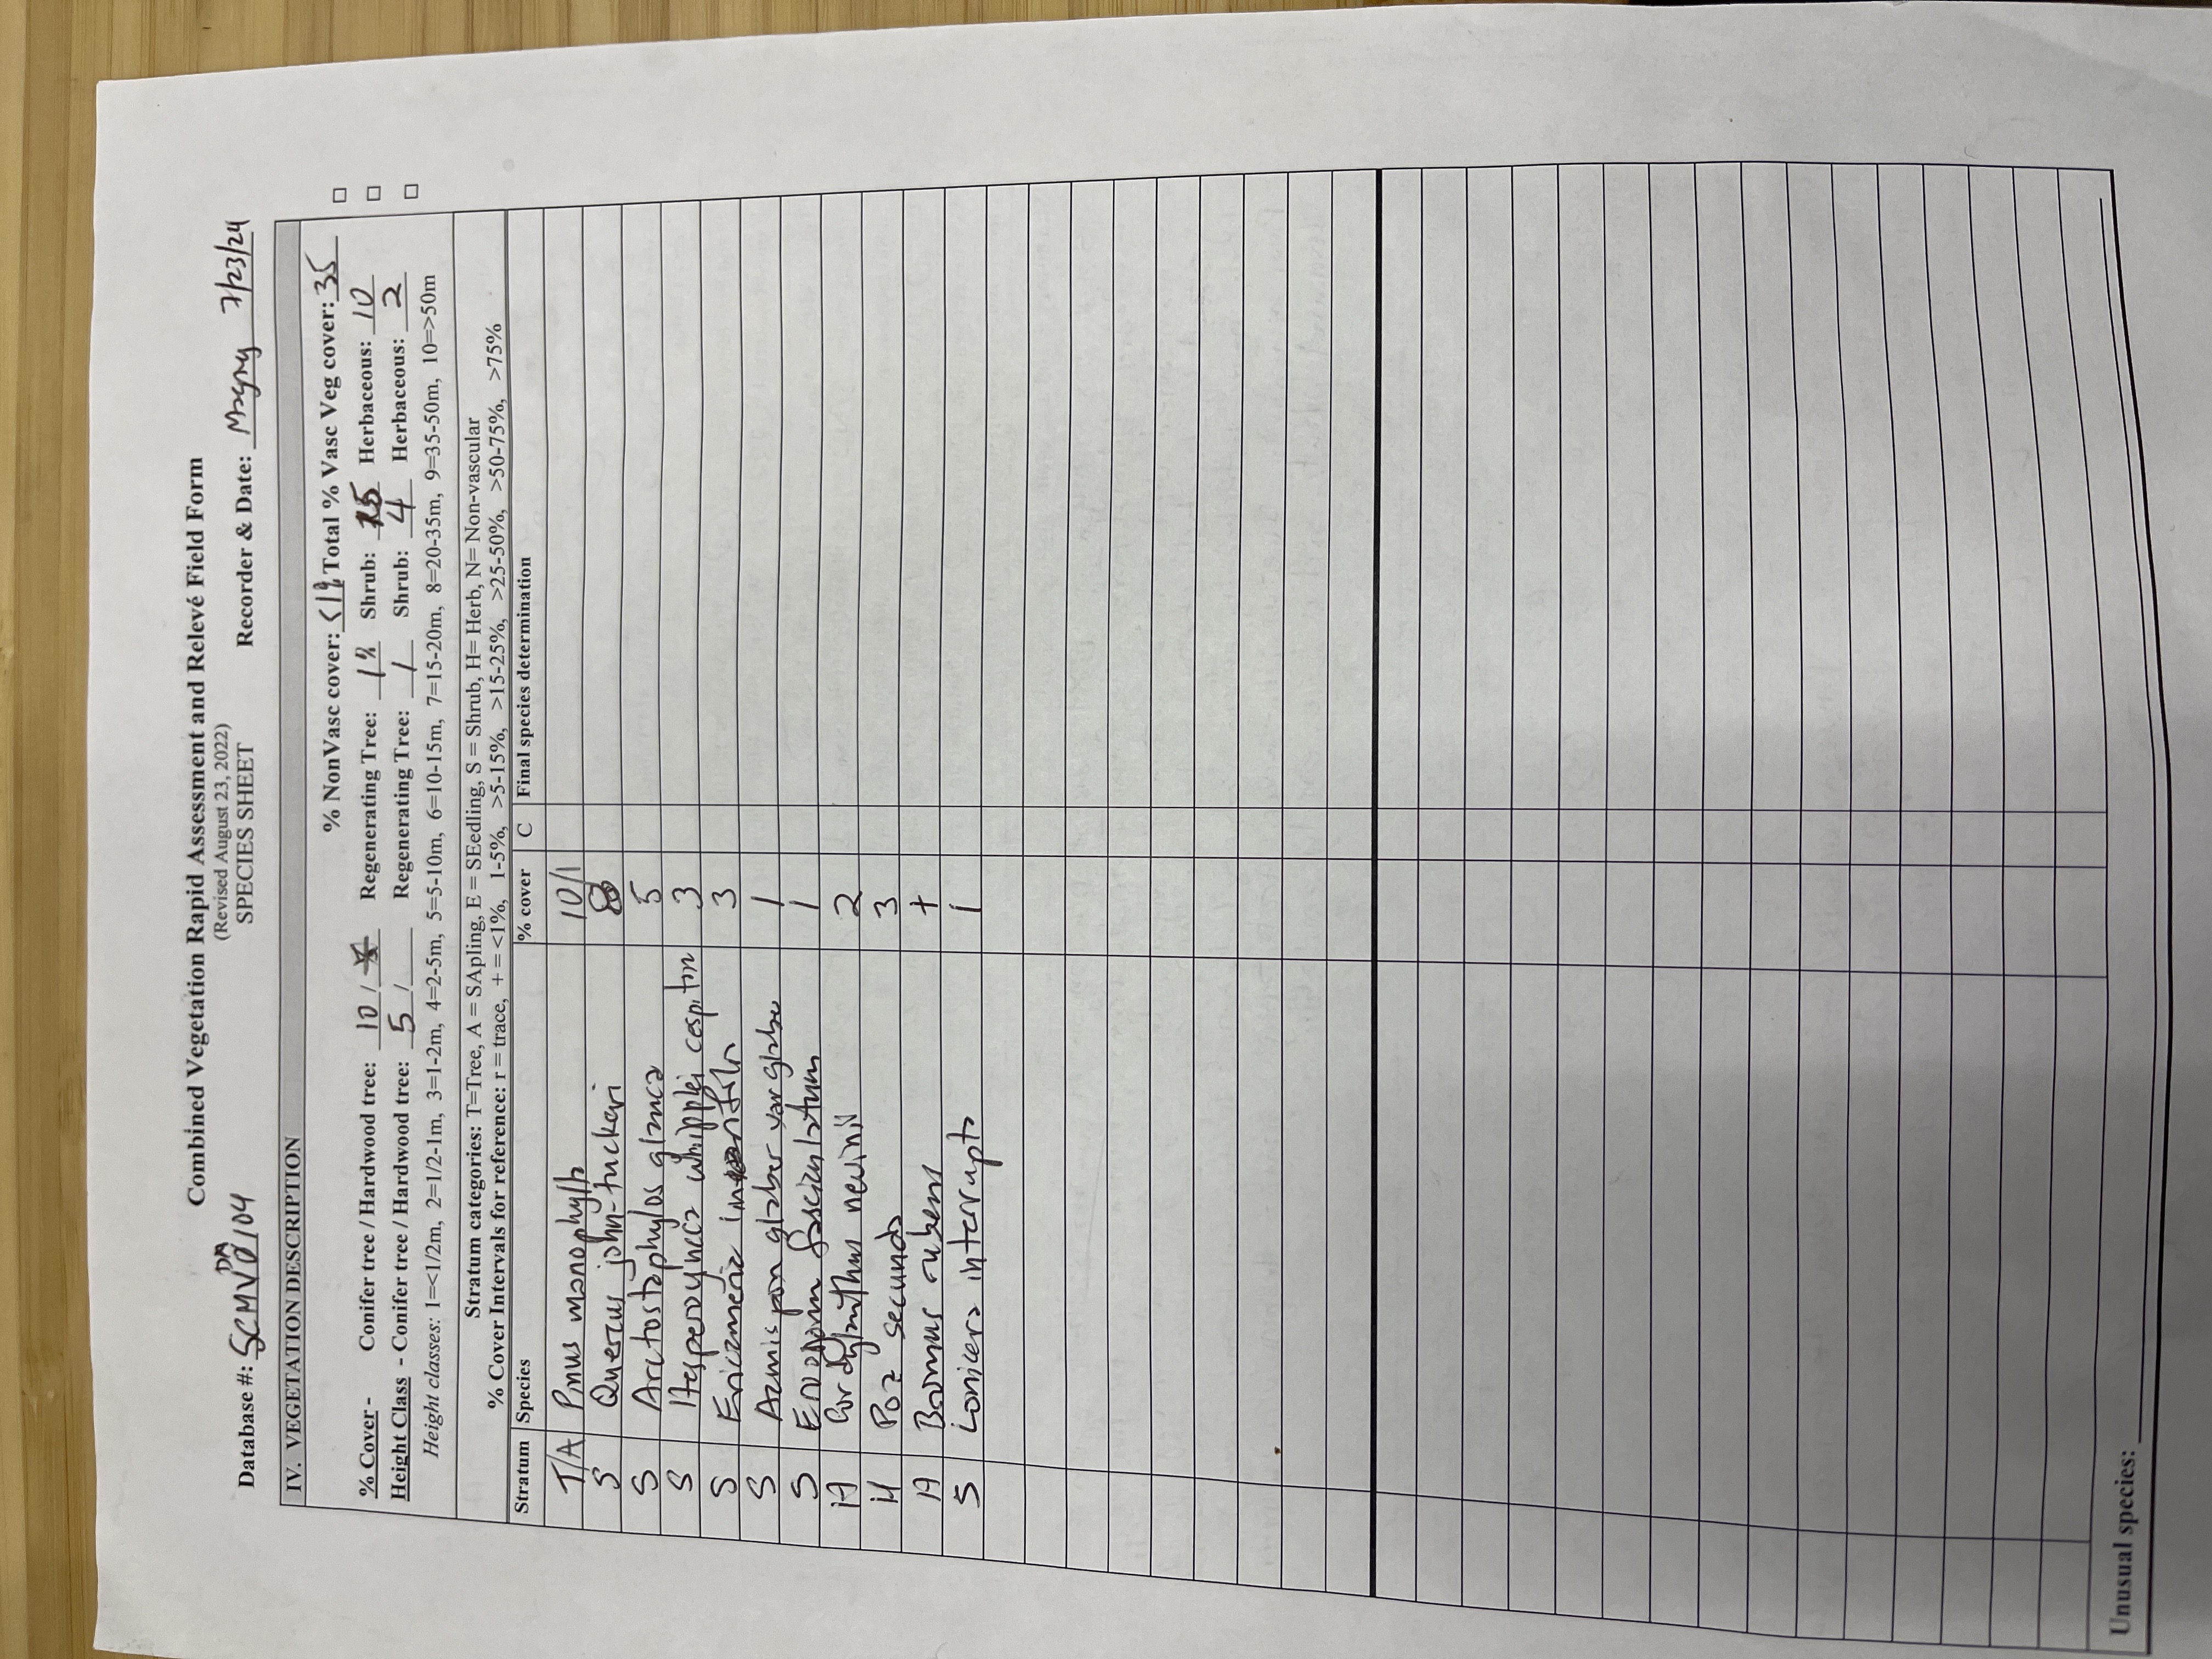 Combined Vegetation Rapid Assessment and Relevé Field Form
(Revised August 23, 2022)
SPECIES SHEET
Database #: SCMVD104 Recorder & Date: Magny 7/23/24
DA
IV. VEGETATION DESCRIPTION
% NonVasc cover: <1% Total % Vasc Veg cover: 35 □
% Cover - Conifer tree / Hardwood tree: 10 / Regenerating Tree: 1% Shrub: 25 Herbaceous: 10 □
Height Class - Conifer tree / Hardwood tree: 5 / Regenerating Tree: 1 Shrub: 4 Herbaceous: 2 □
Height classes: 1=<1/2m, 2=1/2-1m, 3=1-2m, 4=2-5m, 5=5-10m, 6=10-15m, 7=15-20m, 8=20-35m, 9=35-50m, 10=>50m
Stratum categories: T=Tree, A = SApling, E = SEedling, S = Shrub, H= Herb, N= Non-vascular
% Cover Intervals for reference: r = trace, + = <1%, 1-5%, >5-15%, >15-25%, >25-50%, >50-75%, >75%
Stratum Species % cover C Final species determination
T/A Pinus monophylla 10/1
S Quercus john-tuckeri 8
S Arctostaphylos glauca 5
S Hesperoyucca whipplei cespitosa 3
S Ericameria 3
S Acmispon glaber var glaber 1
S Eriogonum fasciculatum 1
H Cordylanthus nevinii 2
H Poa secunda 3
H Bromus rubens +
S Lonicera interrupta 1
Unusual species: